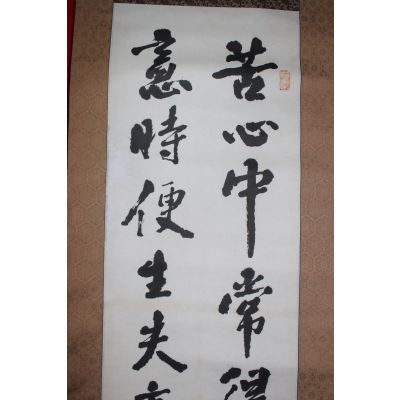 苦心中常得
意時便生失